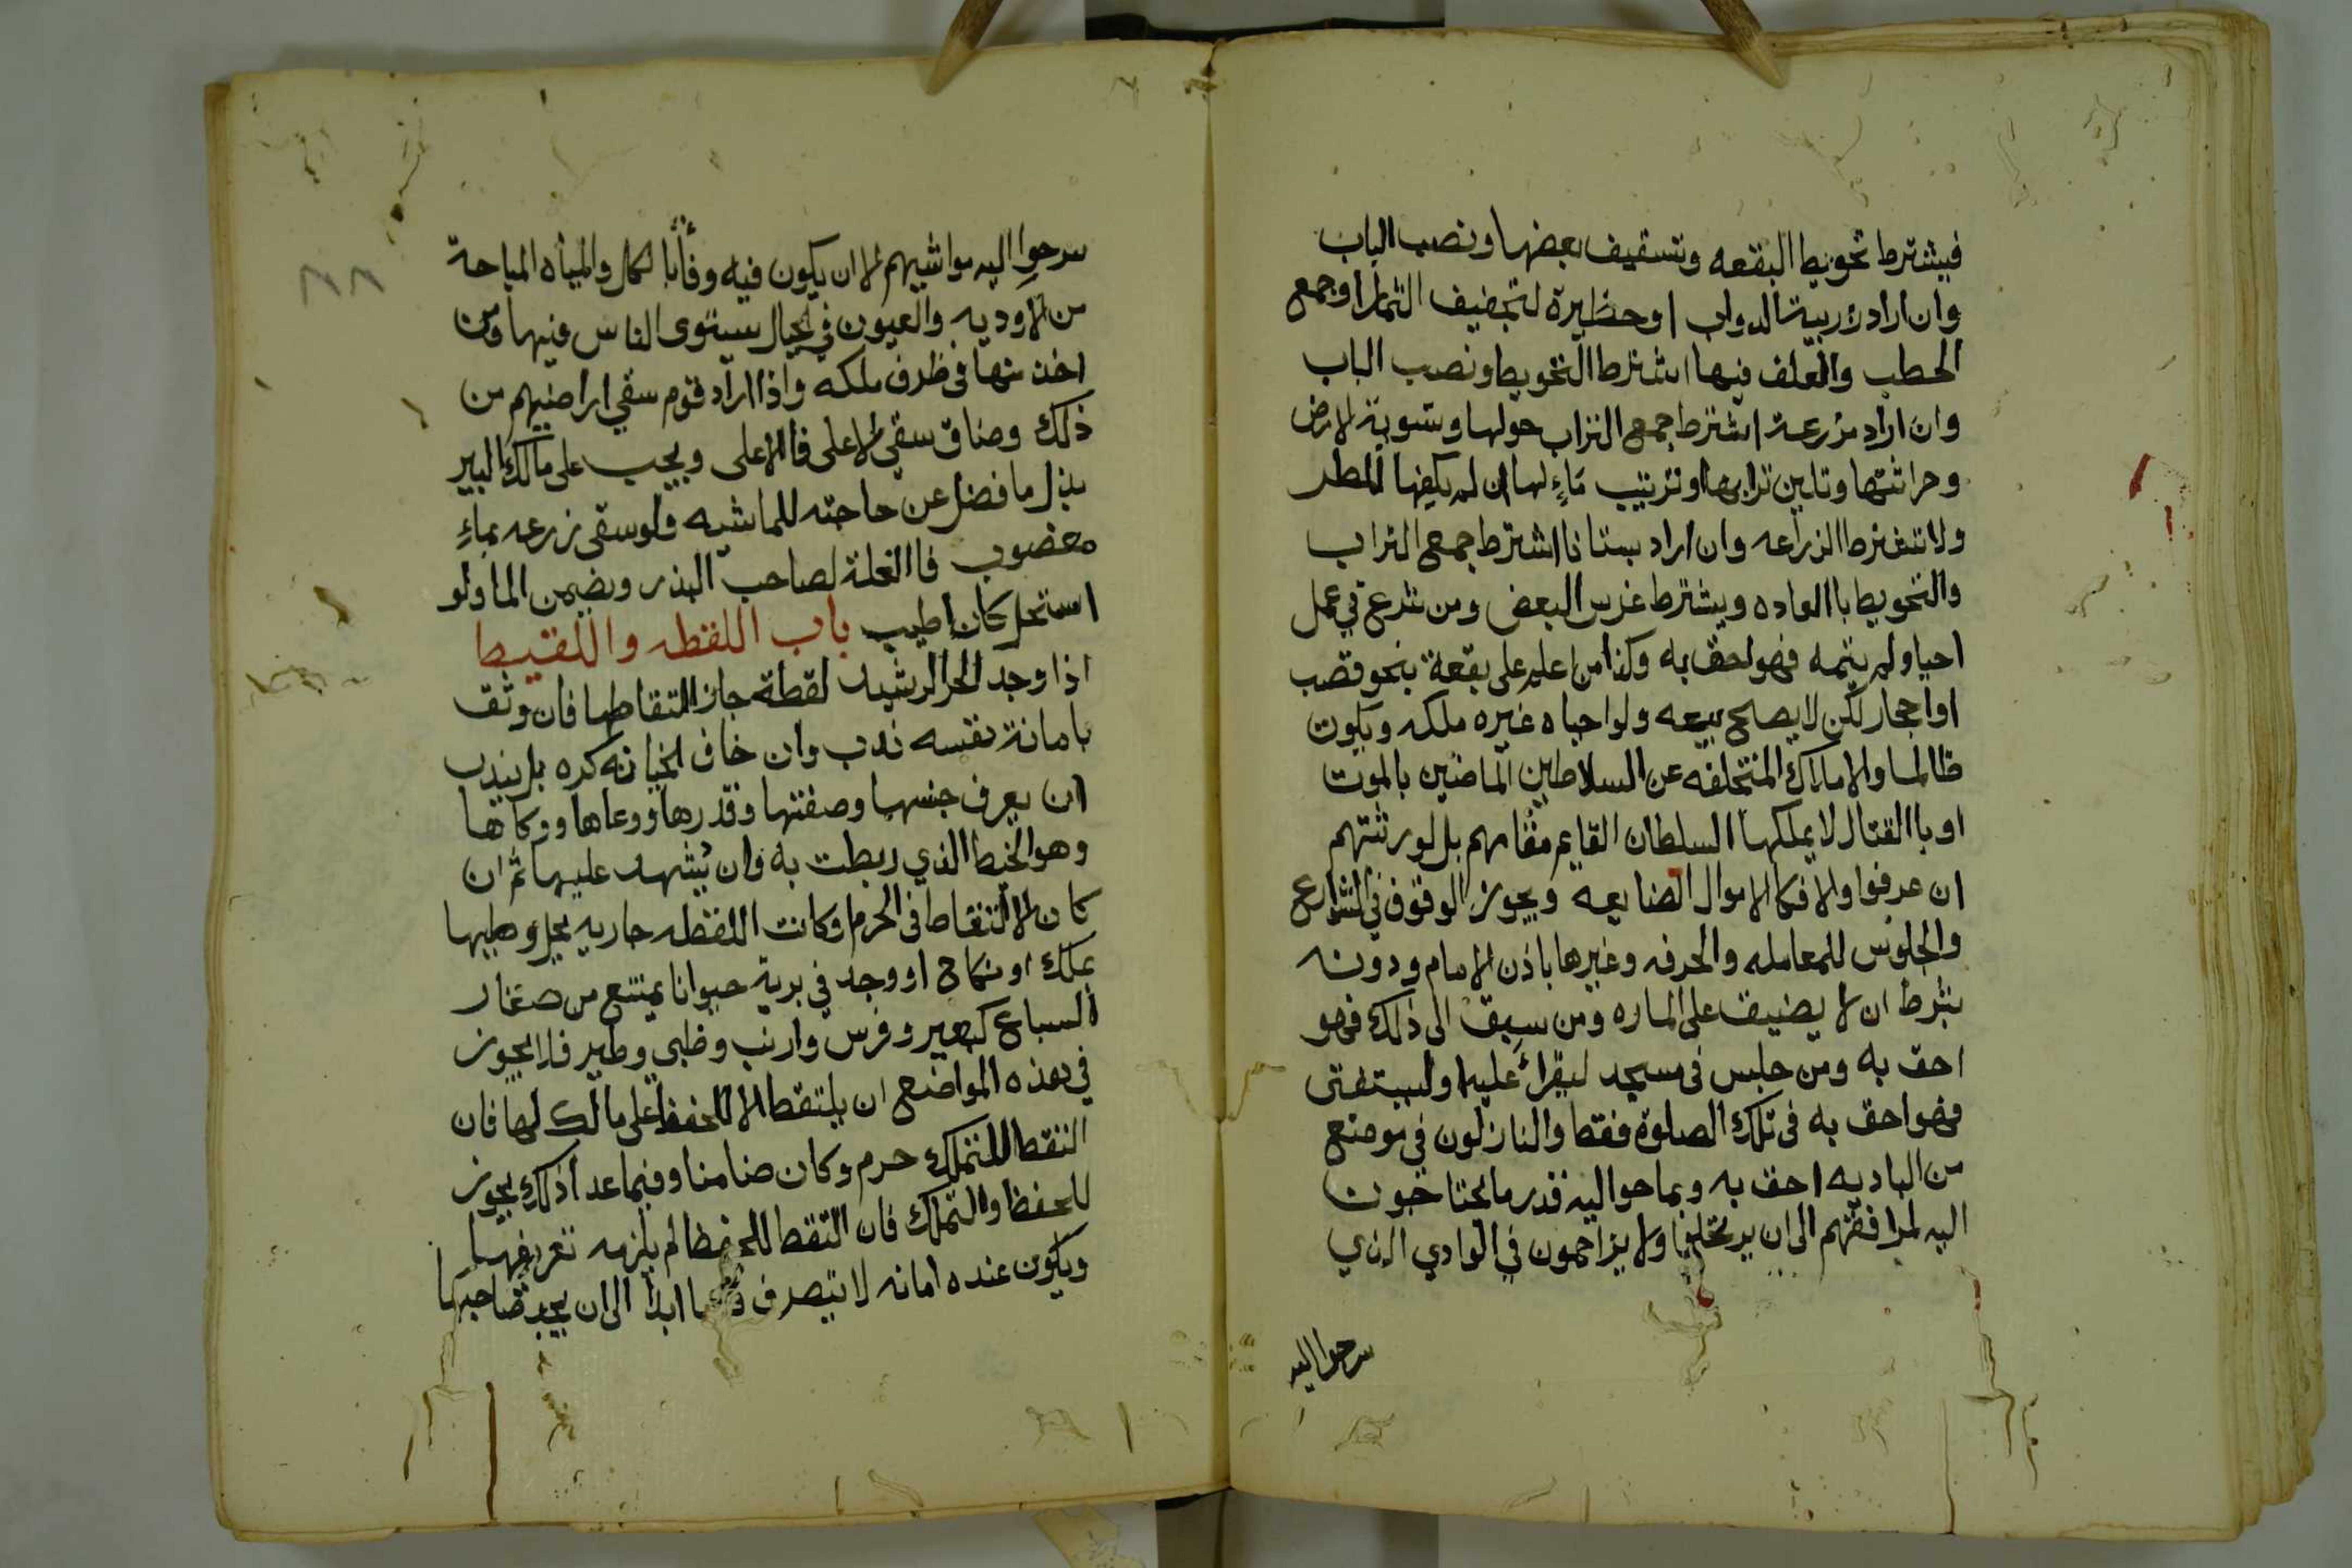 فيشترط تحويط البقعه وتسقيف بعضها ونصب الباب
وان اراد زريبة الدواب او حظيرة لتجفيف الثمار او جمع
الحطب والعلف فيها اشترط التحويط ونصب الباب
وان اراد مزرعة اشترط جمع التراب حولها وتسوية الارض
وحراثتها وتليين ترابها وترتيب ماءٍ لها ان لم يكفها المطر
ولا تشترط الزراعه وان اراد بستانا اشترط جمع التراب
والتحويط باالعاده ويشترط غرس البعض ومن شرع في عمل
احيا ولم يتمه فهو احق به وكذا من اعلم على بقعة بنحو قصب
او احجار لكن لا يصلح بيعه ولو احياه غيره ملكه ويكون
ظالما والاملاك المتخلفه عن السلاطين الماضين بالموت
او باالقتال لا يملكها السلطان القايم مقامهم بل لورثتهم
ان عرفوا والا فكاالاموال الضايعه ويجوز الوقوف في الشوارع
والجلوس للمعامله والحرفه وغيرها باذن الامام ودونه
بشرط ان لا يضيق على الماره ومن سبق الى ذلك فهو
احق به ومن جلس في مسجد ليقرأ عليه او ليستفتى
فهو احق به في تلك الصلوة فقط والنازلون في موضع
من الباديه احق به وبما حواليه قدر ما يحتاجون
اليه لمرافقتهم الى ان يرتحلوا ولا يزاحمون في الوادي الذي
سرحوا اليه
سرحوا اليه مواشيهم الا ان يكون فيه وفأبا لكل والمياه المباحة
من الاوديه والعيون في الجبال يستوى الناس فيها ومن
اخذ منها في ظرف ملكه واذا اراد قوم سقي اراضيهم من
ذلك وضاق سقي الاعلى فاالاعلى ويجب على مالك البير
بذل ما فضل عن حاجته للماشيه ولو سقى زرعه بماءٍ
مغصوب فاالغلة لصاحب البذر ويضمن الما ولو
استحل كان اطيب باب اللقطه واللقيط
اذا وجد الحر الرشيد لقطة جاز التقاطها فان وثق
بامانة نفسه ندب وان خاف الخيانه كره بل يندب
ان يعرف جنسها وصفتها وقدرها ووعاها ووكاها
وهو الخيط الذي ربطت به وان يُشهد عليها ثم ان
كان الالتقاط في الحرم او كانت اللقطه جاريه يحل وطيها
بملك او نكاح او وجد في برية حيوانا يمتنع من صغار
السباع كبعير وفرس وارنب وظبي وطير فلا يجوز
في هذه المواضع ان يلتقط الا للحفظ على مالك لها فان
التقط للتملك حرم وكان ضامنا وفيما عدا ذلك يجوز
للحفظ والتملك فان التقط للحفظ لم يلزمه تعريفها
ويكون عنده امانه لا يتصرف ابدا الى ان يجد صاحبها